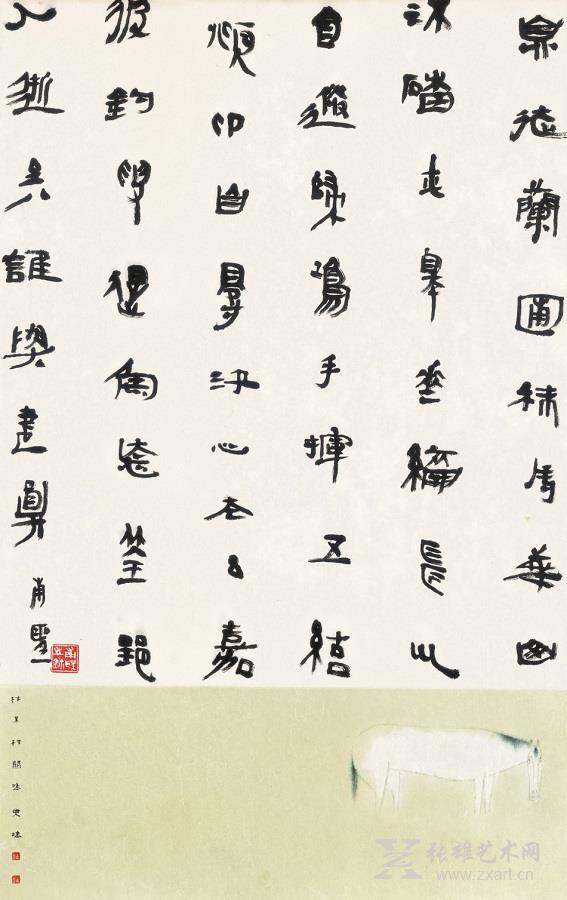 息徒蘭圃秣馬華山
流磻平皋垂綸長川
目送歸鴻手揮五絃
頫卬自得汓心太玄嘉
彼釣叟得魚忘筌郢
人逝矣誰與盡言
甫聖
张雄艺术网
www.zxart.cn